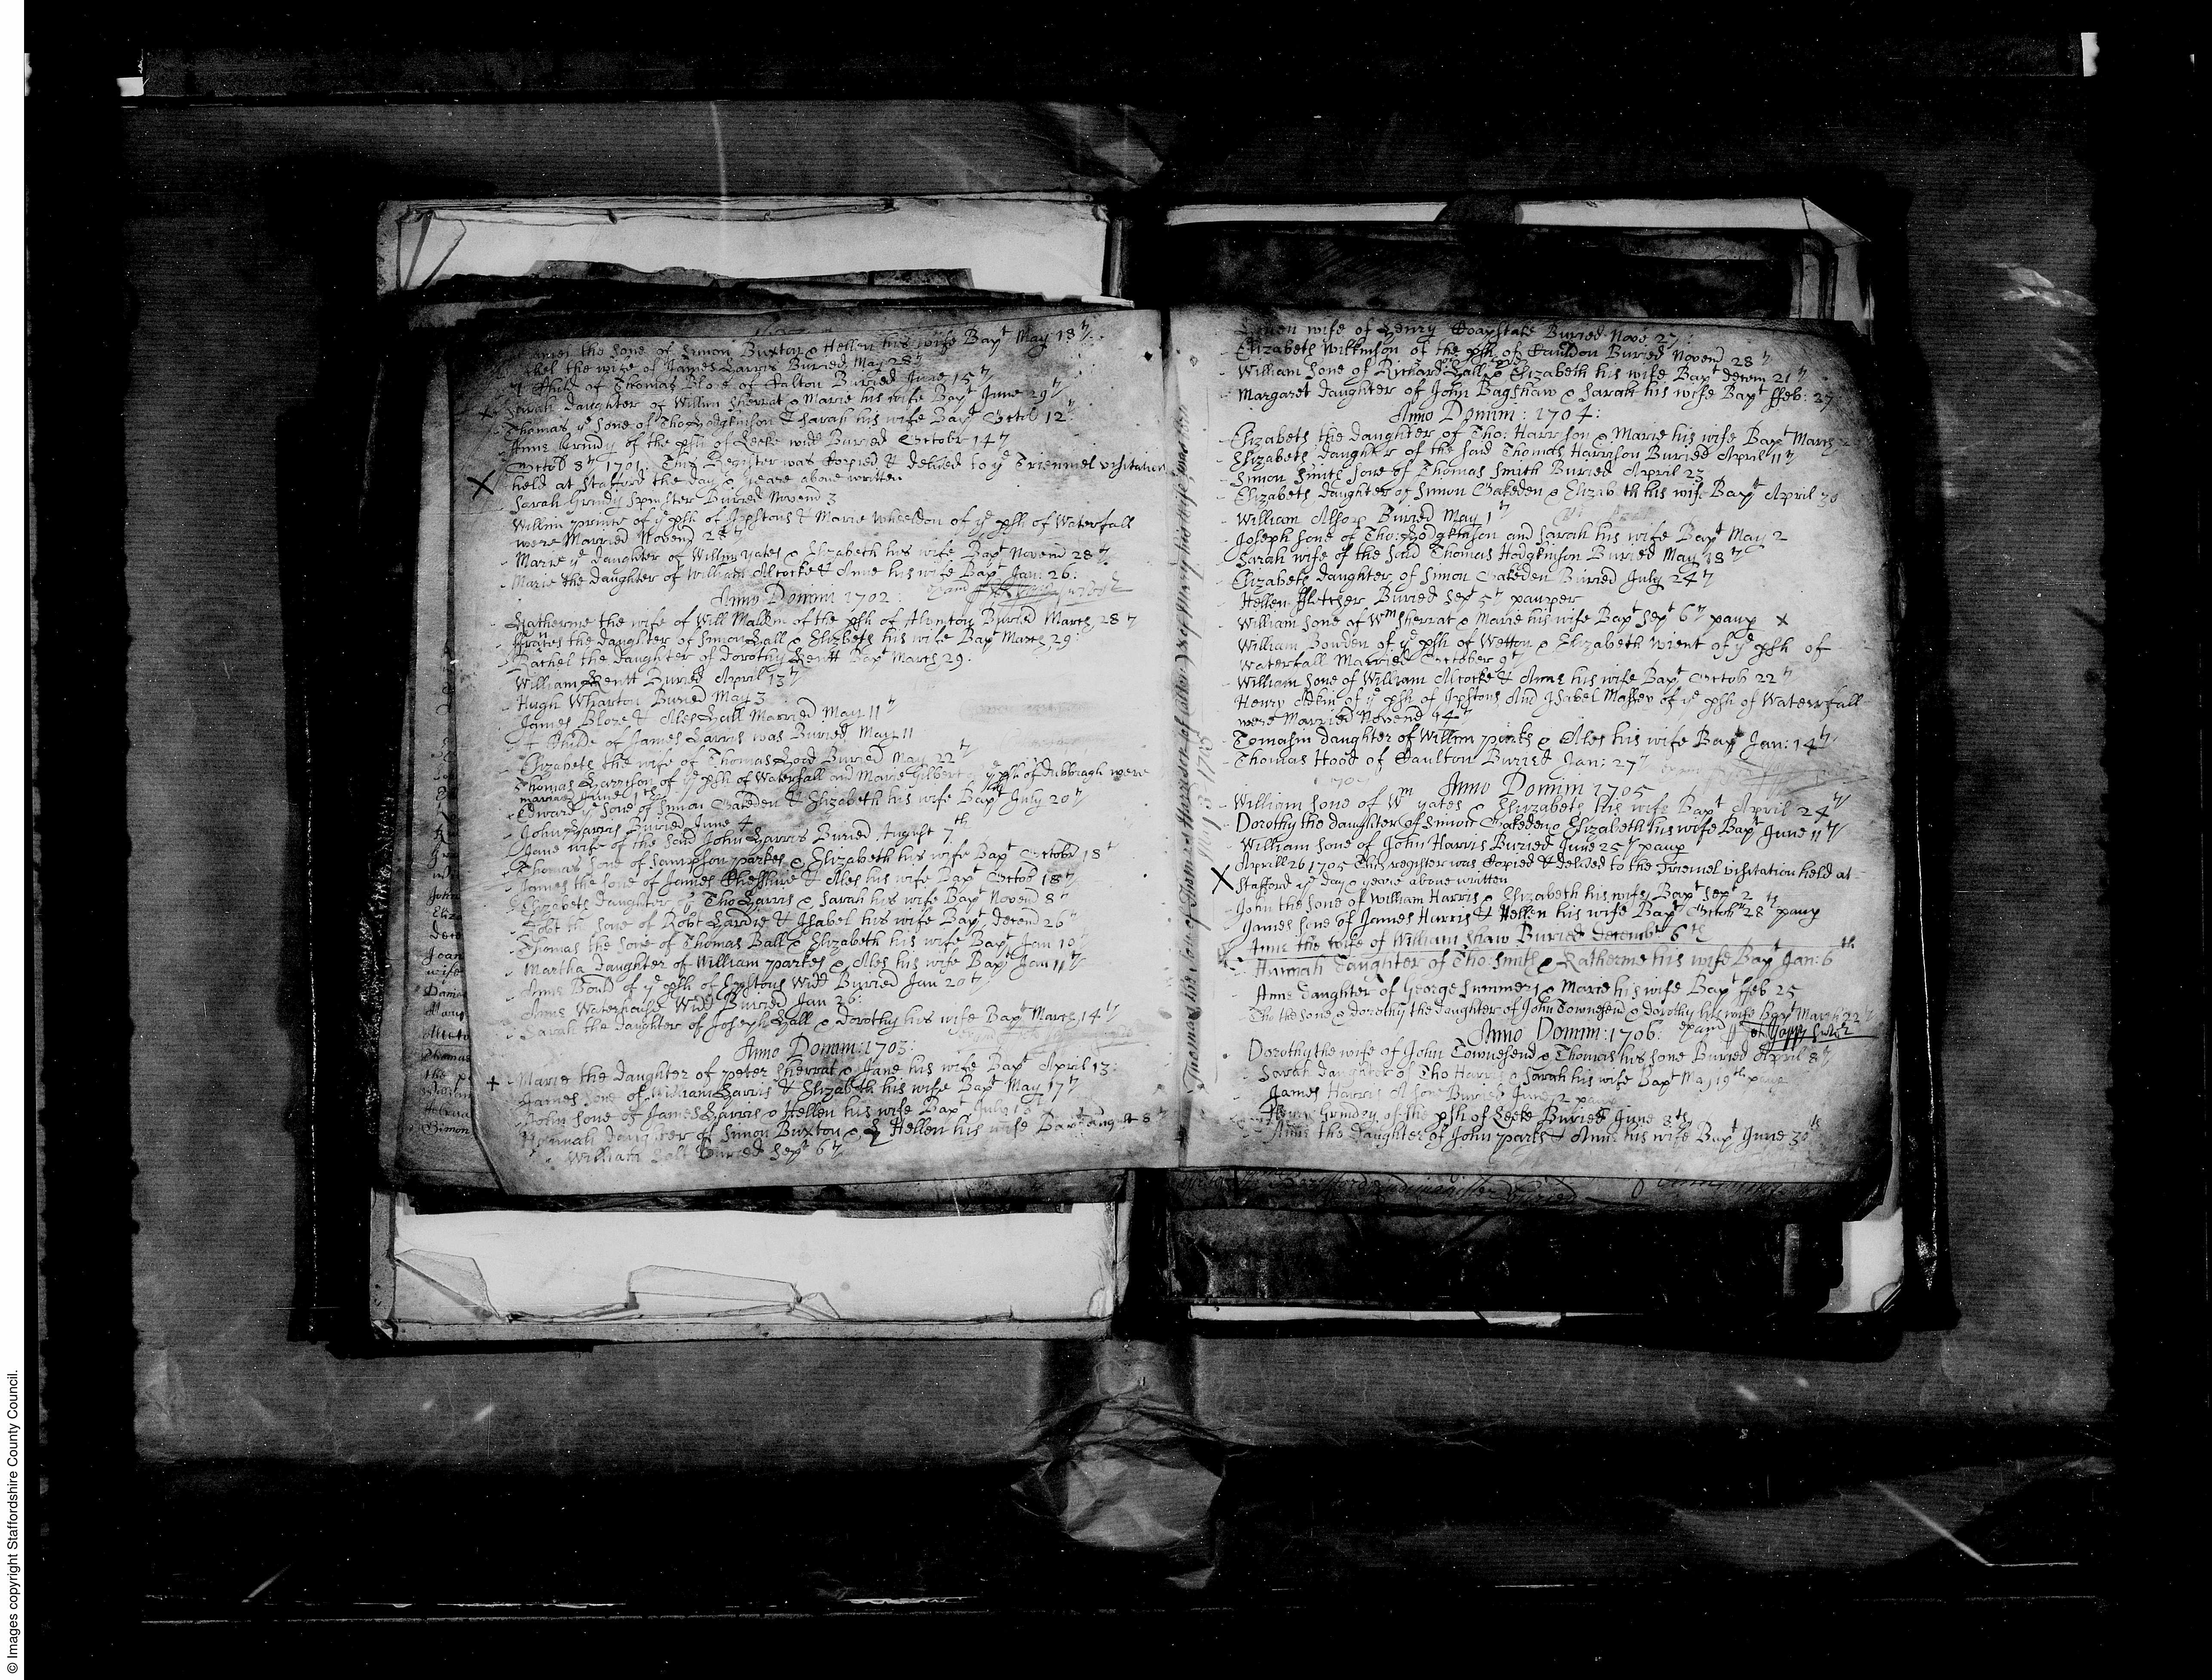 James the sone of Simon Buxton & Hellen his wife Bapt May 18th
the wife of James Harris Buried May 28th
A Childe of Thomas Blore of Calton Buried June 15th
Sarah daughter of Willim Sherrat & Marie his wife Bapt June 29th
Thomas ye sone of Tho: Hodgkinson & Sarah his wife Bapt Octob 12th
Anne Grindy of the psh of Leeke widd Buried October 14th
Octob 8th 1701. This Register was Copied & delived to ye Triennel visitation
held at Stafford the day & yeare above written
Sarah Grindy Spinster Buried Novemb 3
Willim prince of ye psh of Ipstons & Marie Wheeldon of ye psh of Waterfall
were Married Novemb
Marie ye daughter of Willim yates & Elizabeth his wife Bapt Novemb 28th
Marie the daughter of William Alcocke & Anne his wife Bapt Jan: 26:
Anno Domini 1702:
Katherine the wife of Will Mallen of the psh of Alvnton Buried March 28th
Frances the daughter of Simon Hall & Elizbeth his wife Bapt March 29
Rachel the daughter of Dorothy Bapt March 29.
William Buried April 13th
Hugh Wharton Buried May 3
James Blore & Ales Hall Married May 11th
A Childe of James Harris was Buried May 11
Elizabeth the wife of Thomas Lord Buried May 22th
Thomas Harrison of ye psh of Waterfall and Marie Gilbert of ye psh of were
married June 1th
Edward ye sone of Simon Oakeden & Elizabeth his wife Bapt July 20th
John Harris Buried June 4
Jane wife of the said John Harris Buried August 7th
Thomas sone of Sampson parkes & Elizabeth his wife Bapt October 18th
James the sone of James Cheshire & Ales his wife Bapt Octob 18th
Elizabeth daughter of Tho Harris & Sarah his wife Bapt Novemb 8th
Robt the sone of Robt Hardie & Isabel his wife Bapt decemb 26th
Thomas the sone of Thomas Ball & Elizabeth his wife Bapt Jan 10th
Martha daughter of William parkes & Ales his wife Bapt Jan 11th
Anne Bould of ye psh of Ipstons Widd Buried Jan 20th
Anne Waterhouse Widd Buried Jan 26:
Sarah the daughter of Joseph Hall & Dorothy his wife Bapt March 14th
Anno Domini: 1703:
Marie the daughter of peter Sherrat & Jane his wife Bapt April 13:
James sone of William Harris & Elizabeth his wife Bapt May 17th
John sone of James Harris & Hellen his wife Bapt July 18
Hannah daughter of Simon Buxton & Hellen his wife Bapt August 8th
William Holt Buried Sept 6th
Thomas the Son of
May 13 1713
wife of Henry Buried Nov: 27:
Elizabeth Wilkinson of the psh of Cauldon Buried Novemb 28th
William sone of Richard Hall & Elizabeth his wife Bapt decem 21th
Margaret daughter of John Bagshaw & Sarah his wife Bapt ffeb: 27
Anno Domini: 1704:
Elizabeth the daughter of Tho: Harrison & Marie his wife Bapt March
Elizabeth daughter of the said Thomas Harrison Buried April 11th
Simon Smith sone of Thomas Smith Buried April 23
Elizabeth daughter of Simon Oakeden & Elizabeth his wife Bapt April 30
William Alsop Buried May 1th
Joseph sone of Tho: Hodgkinson and Sarah his wife Bapt May 2
Sarah wife of the said Thomas Hodgkinson Buried May 18th
Elizabeth daughter of Simon Oakeden Buried July 24th
Hellen ffletcher Buried Sept 5th pauper
William sone of Wm Sherrat & Marie his wife Bapt Sept 6th paup
William Bowden of ye psh of Wetton & Elizabeth Wient of ye psh of
Waterfall Married October 9th
William sone of William Alcocke & Anne his wife Bapt Octob 22th
Henry of ye psh of Ipstons And Isabel Massey of ye psh of Waterfall
were Married Novemb 14th
Tomasin daughter of Willim parks & Ales his wife Bapt Jan: 14th
Thomas Hood of Caulton Buried Jan: 27th
Anno Domini 1705
William sone of Wm yates & Elizabeth his wife Bapt April 24th
Dorothy the daughter of Simon Oakeden & Elizabeth his wife Bapt June 11th
William sone of John Harris Buried June 25th paup
Aprill 26 1705 This register was Copied & delived to the Trienel visitation held at
Stafford ye day & yeare above written
John the sone of William Harris & Elizabeth his wife Bapt Sept 2
James sone of James Harris & Hellen his wife Bapt Octob 28th paup
Anne the wife of William Shaw Buried decembr 6th
Hannah daughter of Tho: Smith & Katherine his wife Bapt Jan: 6th
Anne daughter of George Summers & Marie his wife Bapt ffeb 25
Tho the sone & dorothy the daughter of John Townsend & dorothy his wife Bapt March 22th
Anno Domini: 1706:
Dorothy the wife of John Townesend & Thomas his sone Buried April 8th
Sarah daughter of Tho Harris & Sarah his wife Bapt May 19th paup
James Harris A sone Buried June 2 paup
Grindey of the psh of Leeke Buried June 8th
Anne the daughter of John parks & Anne his wife Bapt June 30th
© Images copyright Staffordshire County Council.